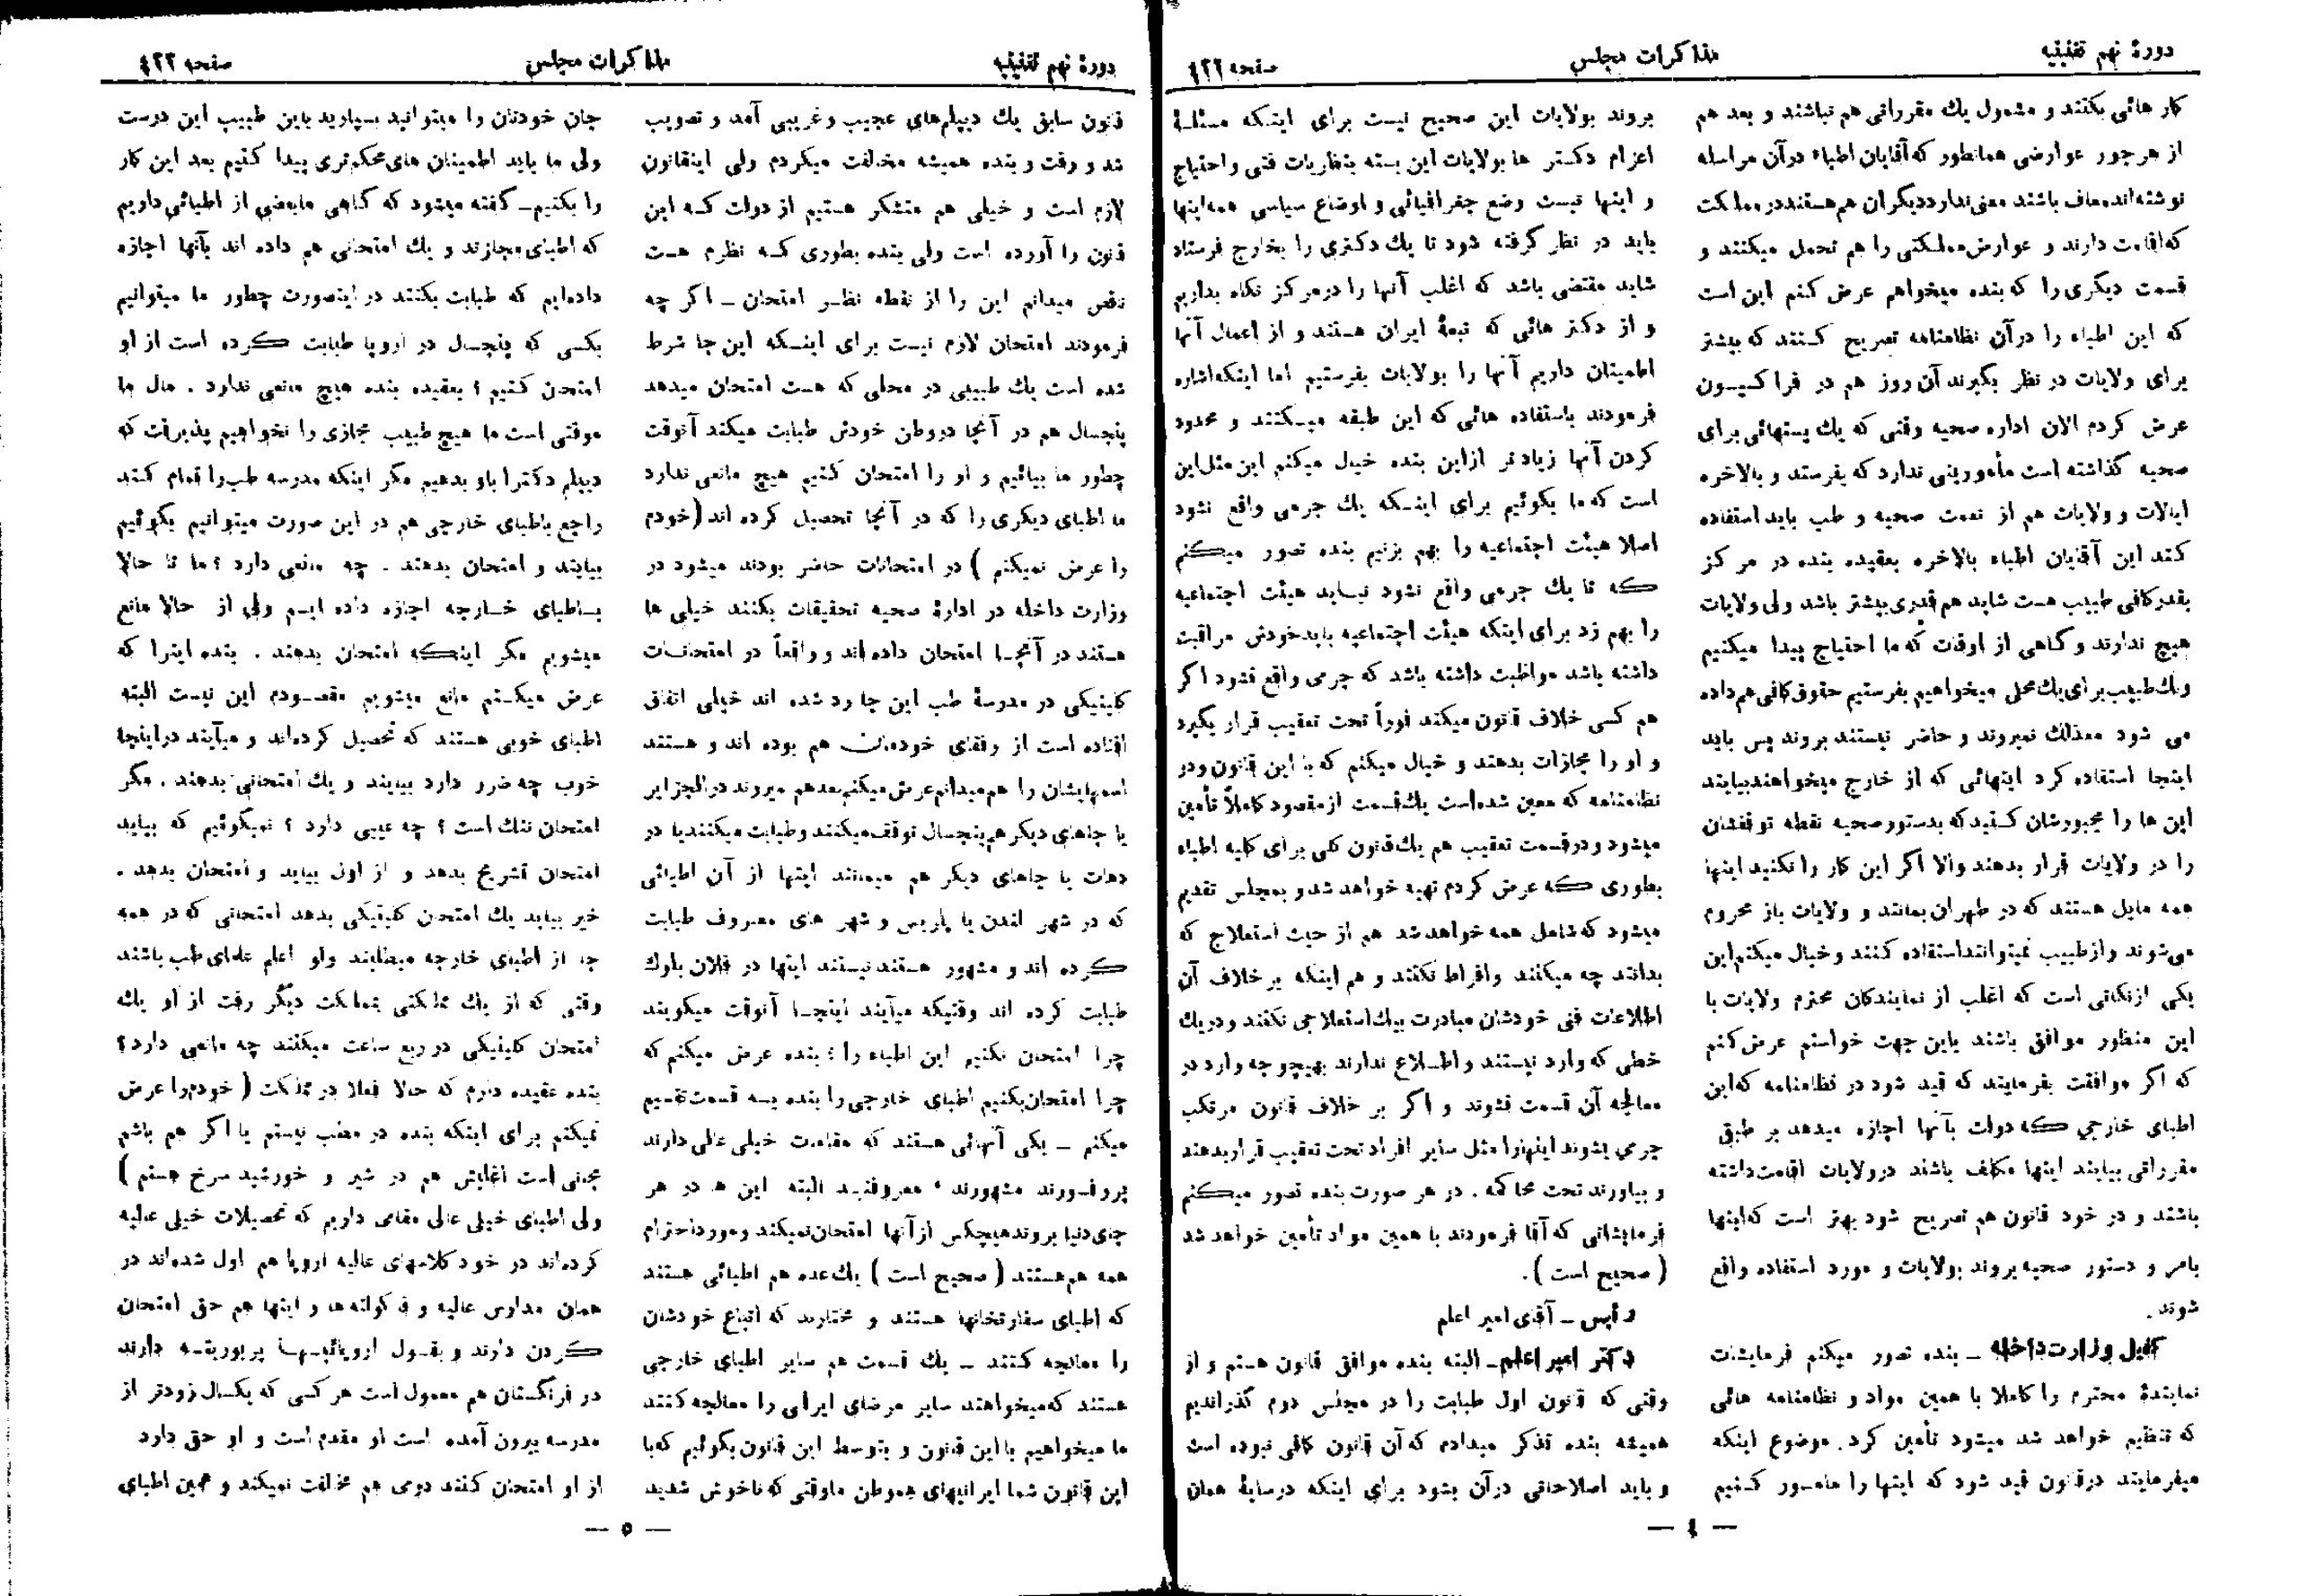 دورهٔ نهم تقنینیه
مذاکرات مجلس
صفحه ٤٢٢
کار هائی بکنند و مشمول یك مقرراتی هم نباشند و بعد هم
از هر جور عوارضی همانطور که آقایان اطباء در آن مراسله
نوشته‌اند معاف باشند معنی ندارد دیگران هم هستند در مملکت
که اقامت دارند و عوارض مملکتی را هم تحمل میکنند و
قسمت دیگری را که بنده میخواهم عرض کنم این است
که این اطباء را در آن نظامنامه تصریح کنند که بیشتر
برای ولایات در نظر بگیرند آن روز هم در فراکسیون
عرض کردم الان اداره صحیه وقتی که یك پستهائی برای
صحیه گذاشته است مأمورینی ندارد که بفرستد و بالاخره
ایالات و ولایات هم از نعمت صحیه و طب باید استفاده
کند این آقایان اطباء بالاخره بعقیده بنده در مرکز
بقدر کافی طبیب هست شاید هم قدری بیشتر باشد ولی ولایات
هیچ ندارند و گاهی از اوقات که ما احتیاج پیدا میکنیم
ویك طبیب برای یك محلی میخواهیم بفرستیم حقوق کافی هم داده
می شود معذلك نمیروند و حاضر نیستند بروند پس باید
اینجا استفاده کرد اینهائی که از خارج میخواهند بیایند
این ها را مجبورشان کنید که بدستور صحیه نقطه توقفشان
را در ولایات قرار بدهند والا اگر این کار را نکنید اینها
همه مایل هستند که در طهران بمانند و ولایات باز محروم
می‌شوند و از طبیب نمیتوانند استفاده کنند و خیال میکنم این
یکی از نکاتی است که اغلب از نمایندگان محترم ولایات با
این منظور موافق باشند باین جهت خواستم عرض کنم
که اگر موافقت بفرمایند که قید شود در نظامنامه که این
اطبای خارجی که دولت بآنها اجازه میدهد بر طبق
مقرراتی بیایند اینها مکلف باشند در ولایات اقامت داشته
باشند و در خود قانون هم تصریح شود بهتر است که اینها
بامر و دستور صحیه بروند بولایات و مورد استفاده واقع
شوند .
کفیل وزارت داخله ـ بنده تصور میکنم فرمایشات
نمایندهٔ محترم را کاملا با همین مواد و نظامنامه هائی
که تنظیم خواهد شد میشود تأمین کرد. موضوع اینکه
میفرمایند در قانون قید شود که اینها را مامور کنیم
بروند بولایات این صحیح نیست برای اینکه مسئلهٔ
اعزام دکتر ها بولایات این بسته بنظریات فنی و احتیاج
و اینها نیست وضع جغرافیائی و اوضاع سیاسی همه اینها
باید در نظر گرفته شود تا یك دکتری را بخارج فرستاد
شاید مقتضی باشد که اغلب آنها را در مرکز نگاه بداریم
و از دکتر هائی که تبعهٔ ایران هستند و از اعمال آنها
اطمینان داریم آنها را بولایات بفرستیم اما اینکه اشاره
فرمودند باستفاده هائی که این طبقه میکنند و محدود
کردن آنها زیادتر از این بنده خیال میکنم این مثل این
است که ما بگوئیم برای اینکه یك جرمی واقع نشود
اصلا هیئت اجتماعیه را بهم بزنیم بنده تصور میکنم
که تا یك جرمی واقع نشود نباید هیئت اجتماعیه
را بهم زد برای اینکه هیئت اجتماعیه باید خودش مراقبت
داشته باشد مواظبت داشته باشد که جرمی واقع نشود اگر
هم کسی خلاف قانون میکند فوراً تحت تعقیب قرار بگیرد
و او را مجازات بدهند و خیال میکنم که با این قانون و در
نظامنامه که معین شده‌است یك قسمت از مقصود کاملاً تأمین
میشود و در قسمت تعقیب هم یك قانون کلی برای کلیه اطباء
بطوری که عرض کردم تهیه خواهد شد و بمجلس تقدیم
میشود که شامل همه خواهد شد هم از حیث استعلاج که
بدانند چه میکنند وافراط نکنند و هم اینکه بر خلاف آن
اطلاعات فنی خودشان مبادرت بیك استعلاجی نکنند و در یك
خطی که وارد نیستند و اطلاع ندارند بهیچوجه وارد در
معالجه آن قسمت نشوند و اگر بر خلاف قانون مرتکب
جرمی بشوند اینها را مثل سایر افراد تحت تعقیب قرار بدهند
و بیاورند تحت محاکمه . در هر صورت بنده تصور میکنم
فرمایشاتی که آقا فرمودند با همین مواد تأمین خواهد شد
( صحیح است ).
رئیس ـ آقای امیر اعلم
دکتر امیر اعلم ـ البته بنده موافق قانون هستم و از
وقتی که قانون اول طبابت را در مجلس دوم گذراندیم
همیشه بنده تذکر میدادم که آن قانون کافی نبوده است
و باید اصلاحاتی در آن بشود برای اینکه در سایهٔ همان
— ٤ —
دورهٔ نهم تقنینیه
مذاکرات مجلس
صفحه ٤٢٣
قانون سابق یك دیپلم‌های عجیب و غریبی آمد و تصویب
شد و رفت و بنده همیشه مخالفت میکردم ولی اینقانون
لازم است و خیلی هم متشکر هستیم از دولت که این
قانون را آورده است ولی بنده بطوری که نظرم هست
ناقص میدانم این را از نقطه نظر امتحان ـ اگر چه
فرمودند امتحان لازم نیست برای اینکه این جا شرط
شده است یك طبیبی در محلی که هست امتحان میدهد
پنجسال هم در آنجا در وطن خودش طبابت میکند آنوقت
چطور ما بیائیم و او را امتحان کنیم هیچ مانعی ندارد
ما اطبای دیگری را که در آنجا تحصیل کرده اند (خودم
را عرض نمیکنم ) در امتحانات حاضر بودند میشود در
وزارت داخله در ادارهٔ صحیه تحقیقات بکنند خیلی ها
هستند در آنجا امتحان داده‌اند و واقعاً در امتحانات
کلینیکی در مدرسهٔ طب این جا رد شده اند خیلی اتفاق
افتاده است از رفقای خودمان هم بوده اند و هستند
اسمهایشان را هم میدانم عرض میکنم بعد هم میروند در الجزایر
یا جاهای دیگر هم پنجسال توقف میکنند و طبابت میکنند یا در
دهات یا جاهای دیگر هم میمانند اینها از آن اطبائی
که در شهر لندن یا پاریس و شهر های معروف طبابت
کرده اند و مشهور هستند نیستند اینها در فلان بلوك
طبابت کرده اند وقتیکه میآیند اینجا آنوقت میگویند
چرا امتحان نکنیم این اطباء را ؛ بنده عرض میکنم که
چرا امتحان بکنیم اطبای خارجی را بنده بسه قسمت تقسیم
میکنم ـ یکی آنهائی هستند که مقامات خیلی عالی دارند
پروفسورند مشهورند ، معروفند البته این ها در هر
جای دنیا بروند هیچکس از آنها امتحان نمیکند و مورد احترام
همه هم هستند ( صحیح است ) یك عده هم اطبائی هستند
که اطبای سفارتخانها هستند و مختارند که اتباع خودشان
را معالجه کنند ـ یك قسمت هم سایر اطبای خارجی
هستند که میخواهند سایر مرضای ایرانی را معالجه کنند
ما میخواهیم با این قانون و بتوسط این قانون بگوئیم که با
این قانون شما ایرانیهای هموطن ما وقتی که ناخوش شدید
جان خودتان را میتوانید بسپارید باین طبیب این درست
ولی ما باید اطمینان های محکم‌تری پیدا کنیم بعد این کار
را بکنیم ـ گفته میشود که گاهی ما بعضی از اطبائی داریم
که اطبای مجازند و یك امتحانی هم داده اند بآنها اجازه
داده‌ایم که طبابت بکنند در اینصورت چطور ما میتوانیم
بکسی که پنجسال در اروپا طبابت کرده است از او
امتحان کنیم ؟ بعقیده بنده هیچ مانعی ندارد . مال ما
موقتی است ما هیچ طبیب مجازی را نخواهیم پذیرفت که
دیپلم دکترا باو بدهیم مگر اینکه مدرسه طب را تمام کند
راجع باطبای خارجی هم در این صورت میتوانیم بگوئیم
بیایند و امتحان بدهند . چه مانعی دارد ؟ ما تا حالا
باطبای خارجه اجازه داده ایم ولی از حالا مانع
میشویم مگر اینکه امتحان بدهند . بنده اینرا که
عرض میکنم مانع میشویم مقصودم این نیست البته
اطبای خوبی هستند که تحصیل کرده‌اند و میآیند در اینجا
خوب چه ضرر دارد بیایند و یك امتحانی بدهند . مگر
امتحان ننگ است ؟ چه عیبی دارد ؟ نمیگوئیم که بیاید
امتحان تشریح بدهد و از اول بیاید و امتحان بدهد .
خیر بیاید یك امتحان کلینیکی بدهد امتحانی که در همه
جا از اطبای خارجه میطلبند ولو اعلم علمای طب باشند
وقتی که از یك مملکتی بمملکت دیگر رفت از او یك
امتحان کلینیکی در ربع ساعت میکنند چه مانعی دارد ؟
بنده عقیده دارم که حالا فعلا در مملکت ( خودم را عرض
نمیکنم برای اینکه بنده در مطب نیستم یا اگر هم باشم
مجانی است اغلبش هم در شیر و خورشید سرخ هستم )
ولی اطبای خیلی عالی مقامی داریم که تحصیلات خیلی عالیه
کرده‌اند در خود کلاسهای عالیه اروپا هم اول شده‌اند در
همان مدارس عالیه و فاکولته ها و اینها هم حق امتحان
کردن دارند و بقول اروپائیها پریوریته دارند
در فرنگستان هم معمول است هر کسی که یکسال زودتر از
مدرسه بیرون آمده است او مقدم است و او حق دارد
از او امتحان کنند دومی هم مخالفت نمیکند و همین اطبای
— ٥ —